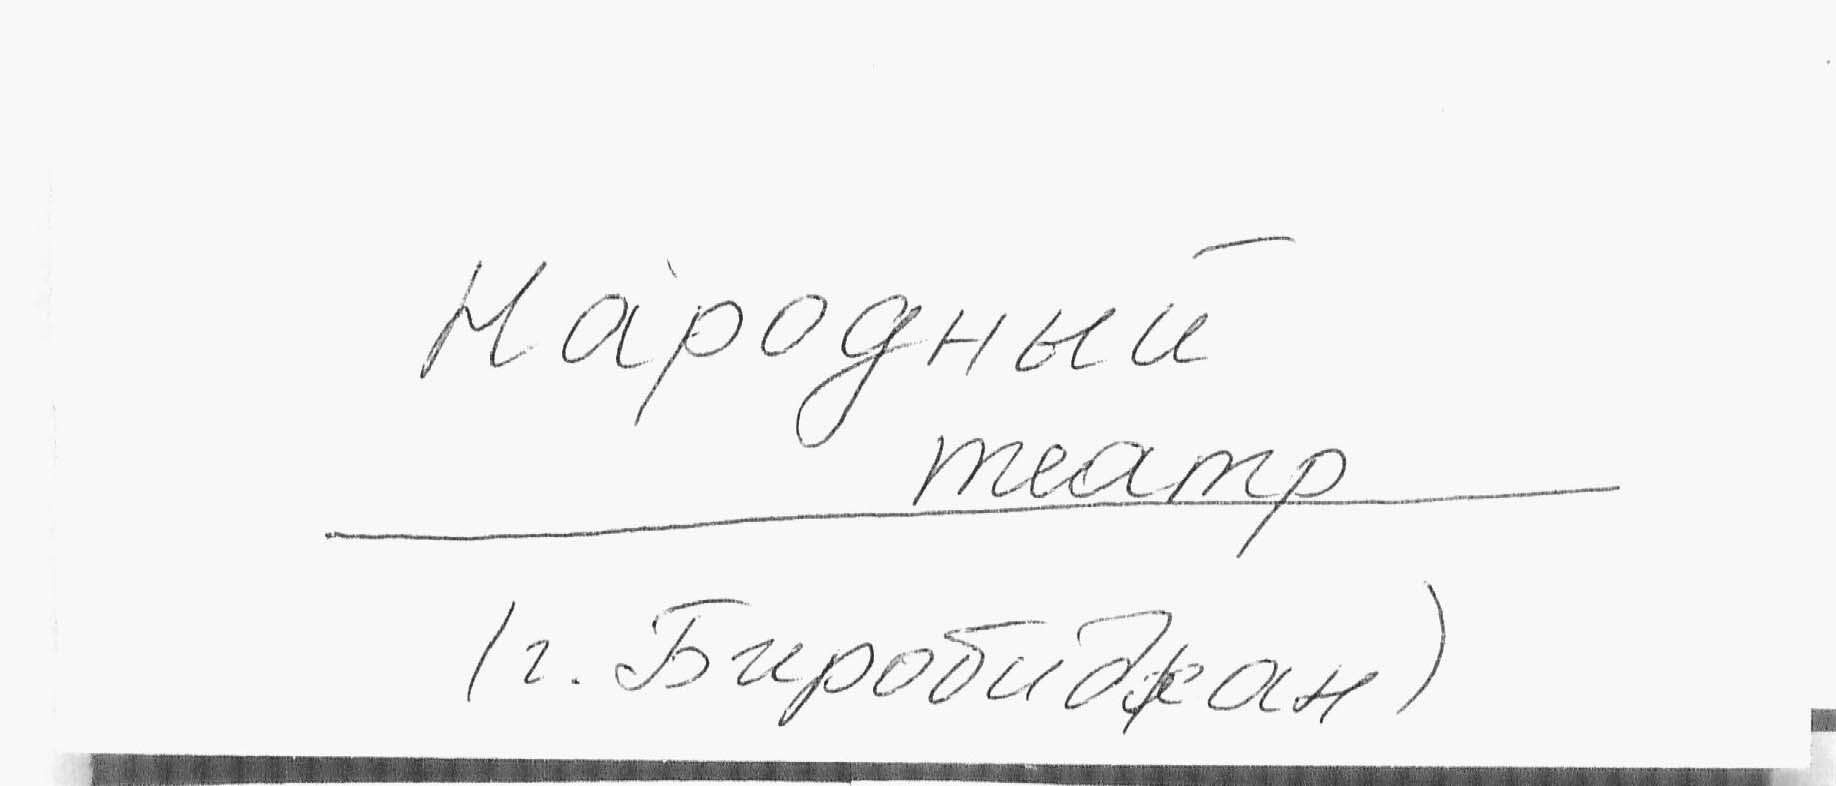 Народный
театр
(г. Биробиджан)